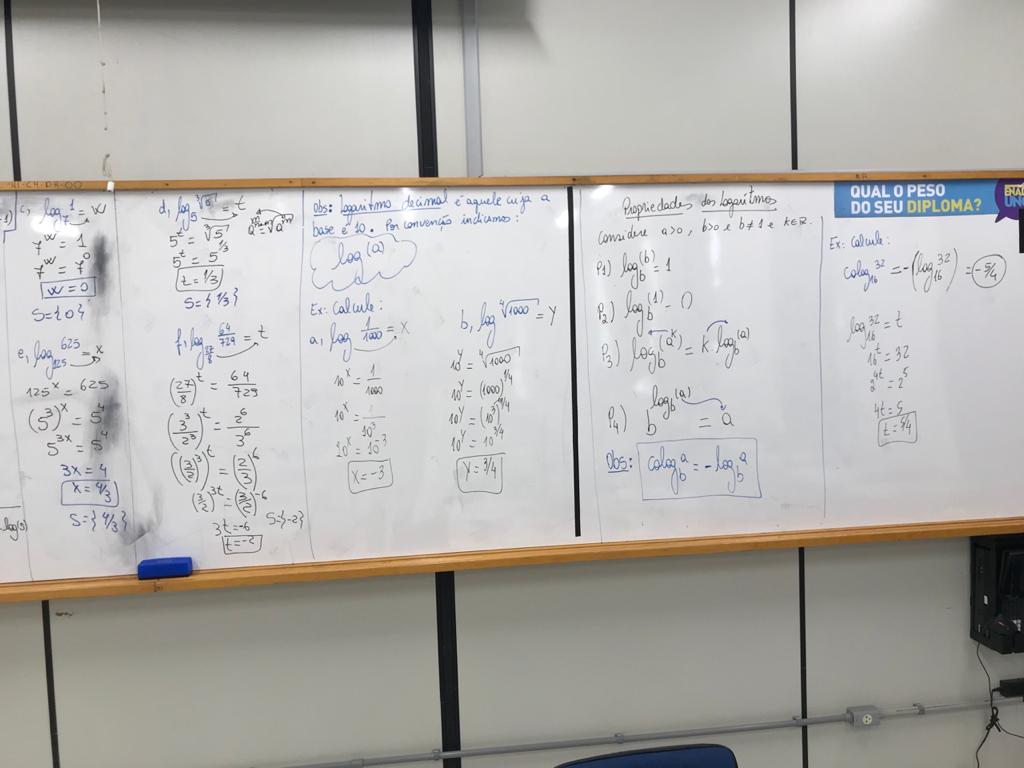 c, log₇ 1 = w
7^w = 1
7^w = 7^0
w=0
S={0}
e, log₁₂₅ 625 = x
125^x = 625
(5^3)^x = 5^4
5^3x = 5^4
3x = 4
x = 4/3
S={4/3}
d, log₅ ∛5 = t
5^t = ∛5
5^t = 5^1/3
t = 1/3
S={1/3}
f, log_27/8 64/729 = t
(27/8)^t = 64/729
(3^3/2^3)^t = 2^6/3^6
((3/2)^3)^t = (2/3)^6
(3/2)^3t = (3/2)^-6
3t=-6
t=-2
S={-2}
Obs: Logaritmo decimal é aquele cuja a
base é 10. Por convenção indicamos:
log(a)
Ex: Calcule:
a, log 1/1000 = x
10^x = 1/1000
10^x = 1/10^3
10^x = 10^-3
x=-3
b, log ∜1000 = y
10^y = ∜1000
10^y = (1000)^1/4
10^y = (10^3)^1/4
10^y = 10^3/4
y=3/4
Propriedades dos logaritmos
Considere a>0, b>0 e b≠1 e k∈R.
P1) log_b (b) = 1
P2) log_b (1) = 0
P3) log_b (a^k) = k·log_b (a)
P4) b^log_b (a) = a
Obs: colog_b a = -log_b a
QUAL O PESO
DO SEU DIPLOMA?
Ex: Calcule:
colog₁₆ 32 = -(log₁₆ 32) = -5/4
log₁₆ 32 = t
16^t = 32
2^4t = 2^5
4t=5
t=5/4